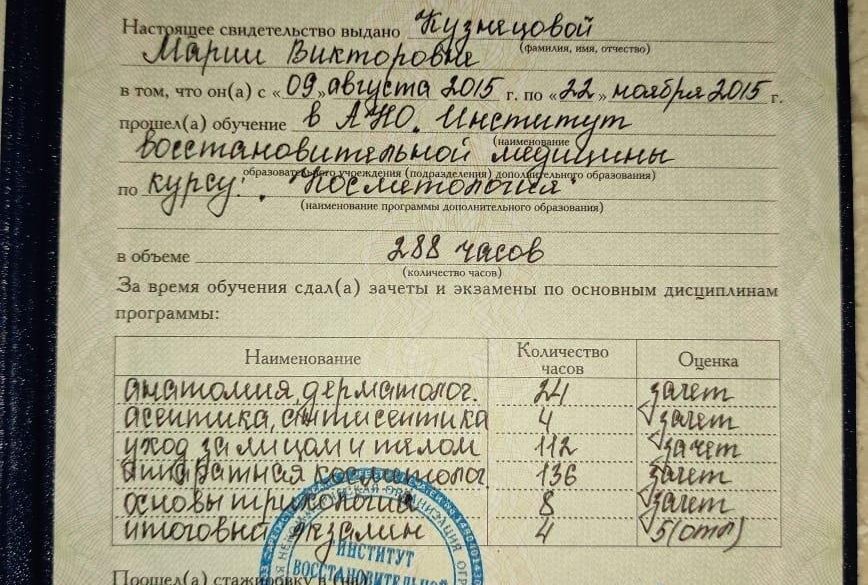 Настоящее свидетельство выдано Кузнецовой
(фамилия, имя, отчество)
Марии Викторовне
в том, что он(а) с «09» августа 2015 г. по «22» ноября 2015 г.
прошел(а) обучение в АНО. Институт
(наименование
восстановительной медицины
образовательного учреждения (подразделения) дополнительного образования)
по курсу: "Косметология"
(наименование программы дополнительного образования)
в объеме 288 часов
(количество часов)
За время обучения сдал(а) зачеты и экзамены по основным дисциплинам
программы:
Наименование Количество часов Оценка
анатомия, дерматолог. 24 зачет
асептика, антисептика 4 зачет
уход за лицом и телом 112 зачет
аппаратная косметолог. 136 зачет
основы трихологии 8 зачет
итоговый экзамен 4 5 (отл)
ИНСТИТУТ
ВОССТАНОВИТЕЛЬНОЙ
Прошел(а) стажировку в (на)